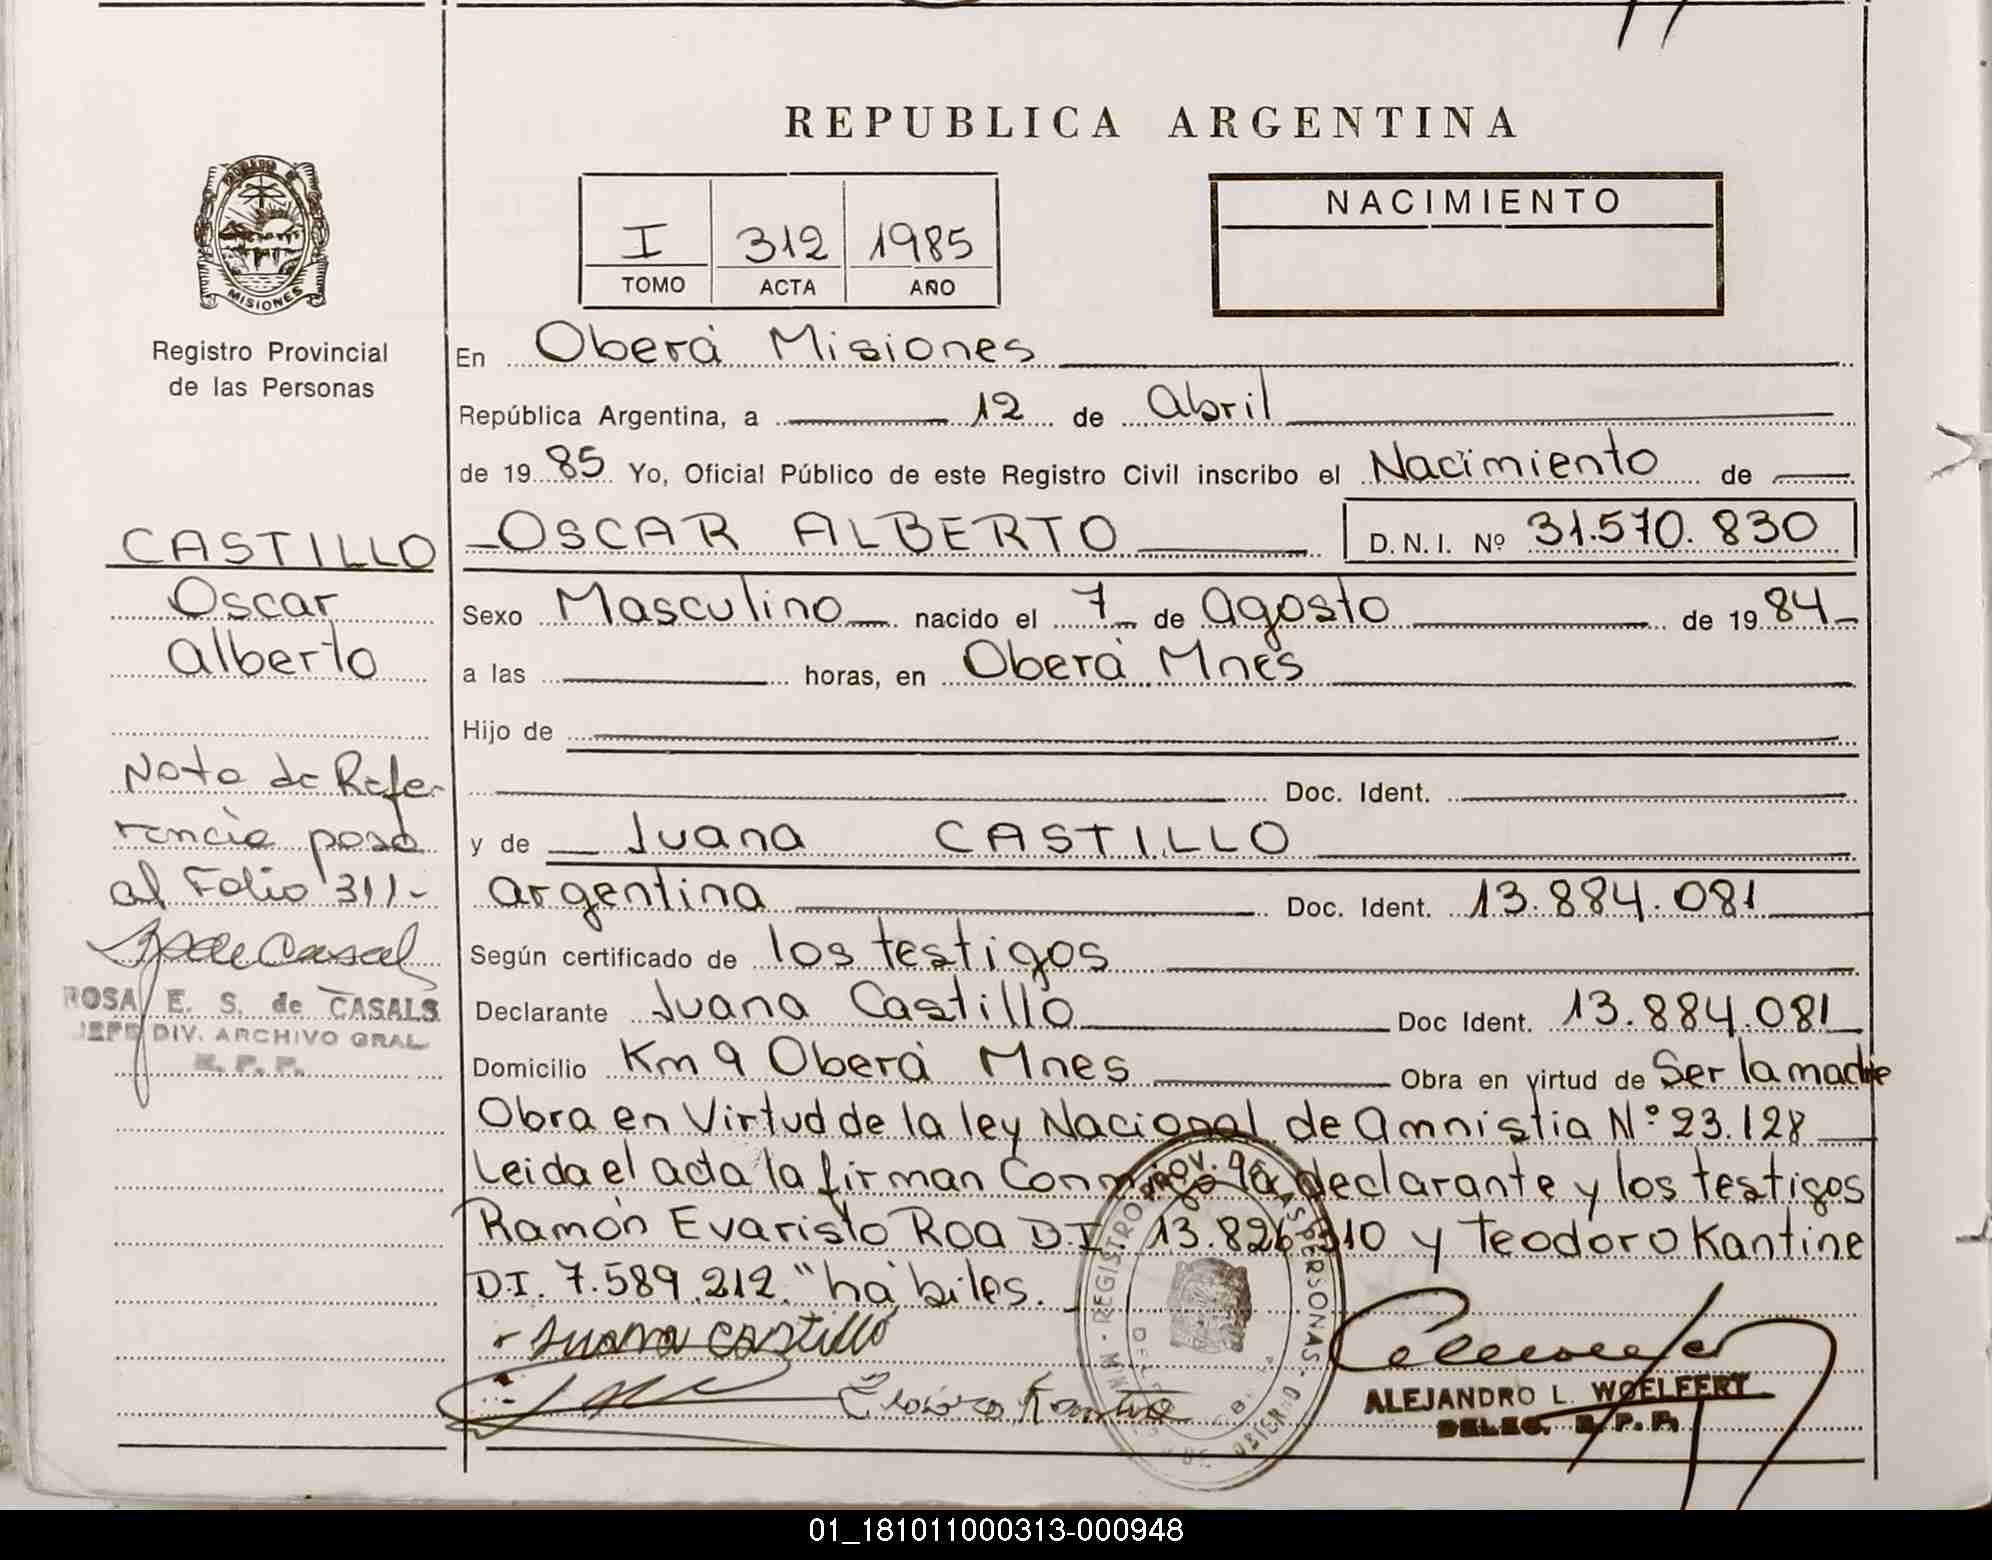 REPUBLICA ARGENTINA
MISIONES
Registro Provincial
de las Personas
I 312 1985
TOMO ACTA AÑO
NACIMIENTO
En Oberá Misiones
República Argentina, a 12 de Abril
de 1985 Yo, Oficial Público de este Registro Civil inscribo el Nacimiento de
OSCAR ALBERTO D. N. I. Nº 31.570.830
Sexo Masculino nacido el 7 de Agosto de 1984
a las horas, en Oberá Mnes
Hijo de
Doc. Ident.
y de Juana CASTILLO
argentina Doc. Ident. 13.884.081
Según certificado de los testigos
Declarante Juana Castillo Doc Ident. 13.884.081
Domicilio Km 9 Oberá Mnes Obra en virtud de Ser la madre
Obra en Virtud de la ley Nacional de Amnistia Nº 23.128
Leida el acta la firman Conmigo la declarante y los testigos
Ramón Evaristo Roa D.I. 13.826.310 y Teodoro Kantine
D.I. 7.589.212 "hábiles.
Juana Castillo
ALEJANDRO L. WOELFERT
DELEG. R. P. P.
CASTILLO
Oscar
Alberto
Nota de Refe-
rencia pasa
al Folio 311-
ROSA E. S. de CASALS
JEFE DIV. ARCHIVO GRAL.
R. P. P.
REGISTRO PROV. DE LAS PERSONAS
01_181011000313-000948